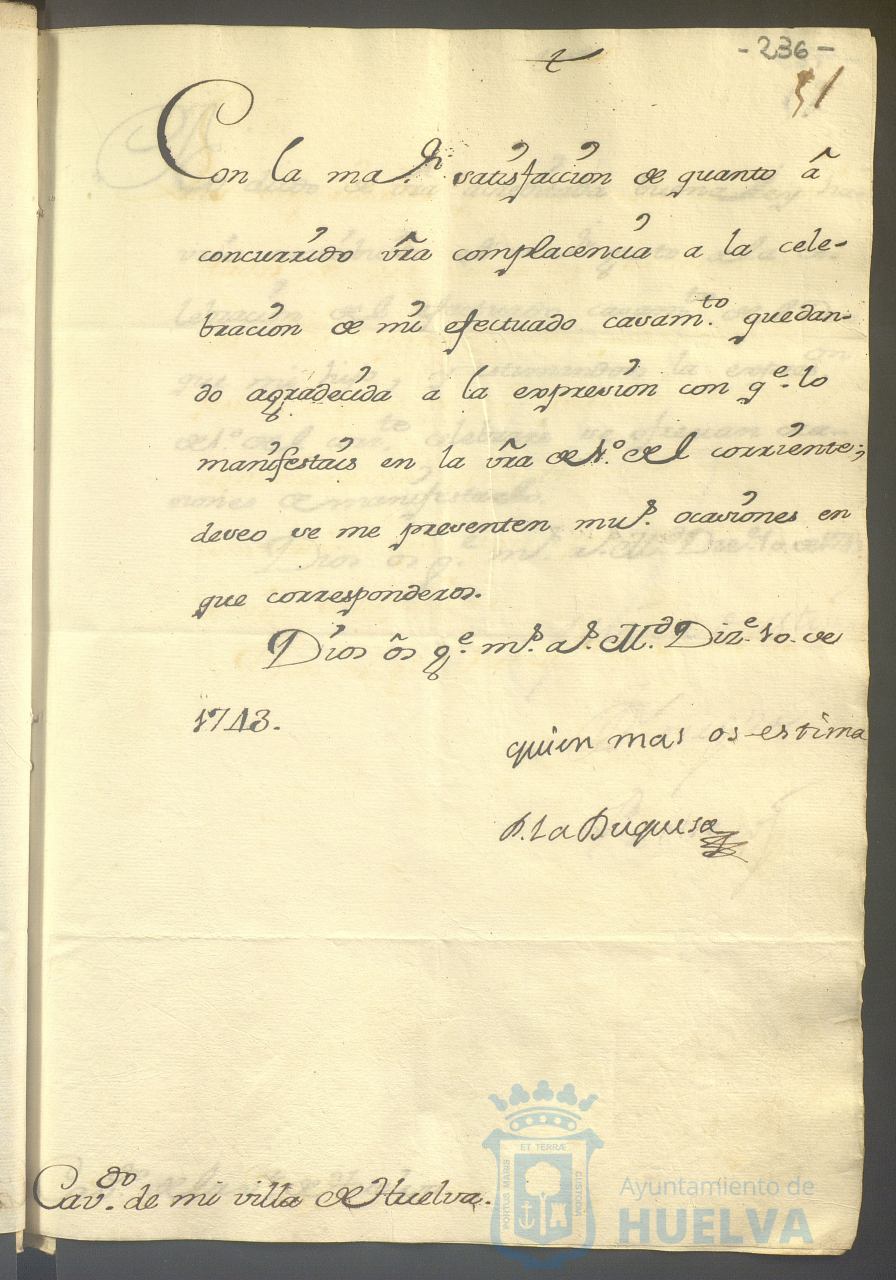 - 236 -
51
Con la maR. satisfaccion de quanto â
concurrido vr̃a complacencia a la cele-
bracion de mi efectuado casam.to quedan-
do agradecida a la expresion con q.e lo
manifestais en la vr̃a de 1.o de el corriente;
deseo se me presenten mu.s ocasiones en
que corresponderos.
Dios õs g.e m.s a.s M.d Diz.e 10. de
1743.
quien mas os estima
la Duquesa
Cav.do de mi villa de Huelva.
ET TERRÆ
PORTUS MARIS
CUSTODIA
Ayuntamiento de
HUELVA